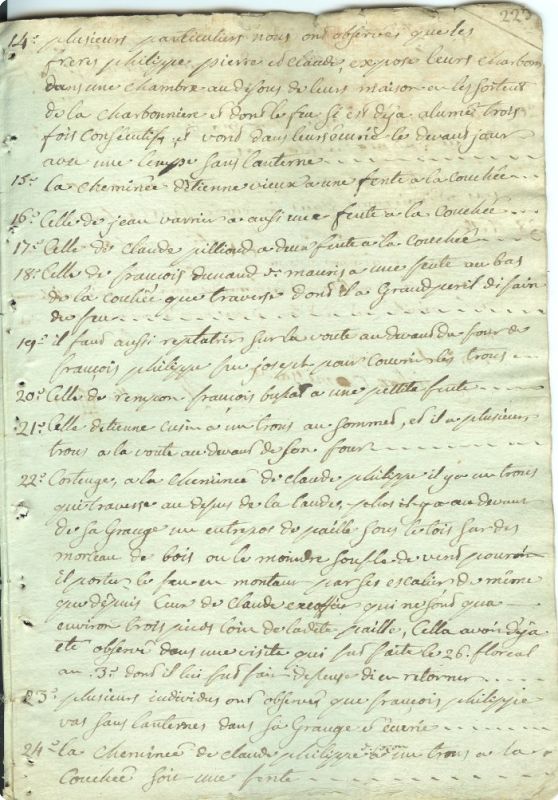 223
14° plusieurs particuliers nous ont observés que les
frères philippe pierre et Claude, expose leurs charbon
dans une chambre au disous de leurs maison en les sortent
de la charbonnier et dont le feu si est déja alumés trois
fois consécutifs, et vont dans leurs le devant jour
avec une lempe sans lanterne
15° la cheminée détienne vieux a une fente a la Couchée
16° Celle de jean varrin a aussi une fente a la Couchée
17° Celle de Claude pilliond a une fente a la Couchée
18° Celle de françois dunand mauris a une feute au bas
de la couchée que traverse dont il a Grand peril di faire
du feu
19° il faud aussi replatrir sur la voute au devand du four de
françois philippe feu joseph pour Couvrir les trous
20° Celle de françois buhat a une pettite fente
21° Celle détienne cusin a un trous au sommed, et il a plusieur
trous a la voute au devand de son four
22° Cortenge, a la Cheminée de claude philippe il ya un trous
qui traverse au depus de la laude, plus il ya au devant
de sa Grange un entrepos de paille sous le tois sur des
morceau de bois ou le moindre soufle de vend pouroit
il porter le feu en montant par ses escalier de même
que depuis Ceux de Claude qui ne sond qua
environ trois pieds loin de ladite paille, Cella avoit déja
eté observé dans une visite qui fud faite le 26 floréal
an 3° dont il lui fud fait defense di en retorner
23° plusieurs individus ont observés que françois philippe
vas sans lanternes dans sa Grange écurie
24° la cheminée de claude philippe a un trous a la
Couchée soit une fente